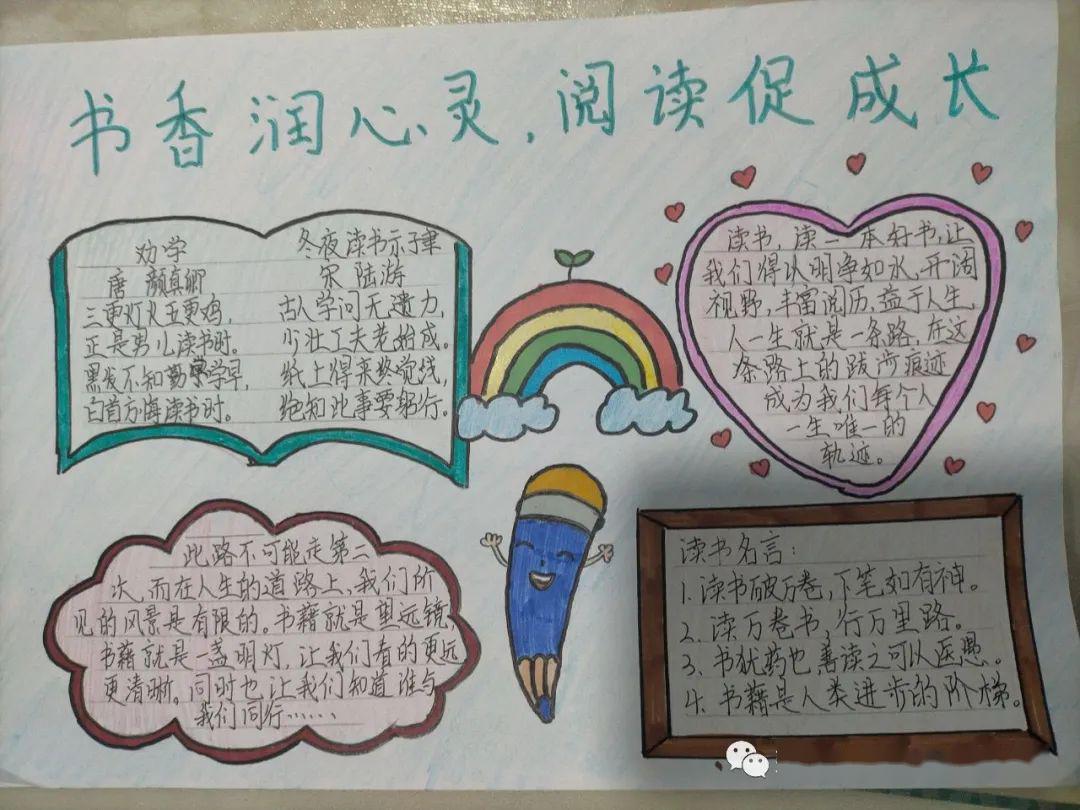 书香润心灵,阅读促成长
劝学
唐 颜真卿
三更灯火五更鸡,
正是男儿读书时。
黑发不知勤学早,
白首方悔读书时。
冬夜读书示子聿
宋 陆游
古人学问无遗力,
少壮工夫老始成。
纸上得来终觉线,
绝知此事要躬行。
读书,读一本好书,让
我们得以明净如水,开阔
视野,丰富阅历,益于人生,
人一生就是一条路,在这
条路上的跋步痕迹
成为我们每个人
一生唯一的
轨迹。
此路不可能走第二
次,而在人生的道路上,我们所
见的风景是有限的。书籍就是望远镜,
书籍就是一盏明灯,让我们看的更远
更清晰。同时也让我们知道谁与
我们同行……
读书名言:
1.读书破万卷,下笔如有神。
2.读万卷书,行万里路。
3.书犹药也,善读之可以医愚。
4.书籍是人类进步的阶梯。